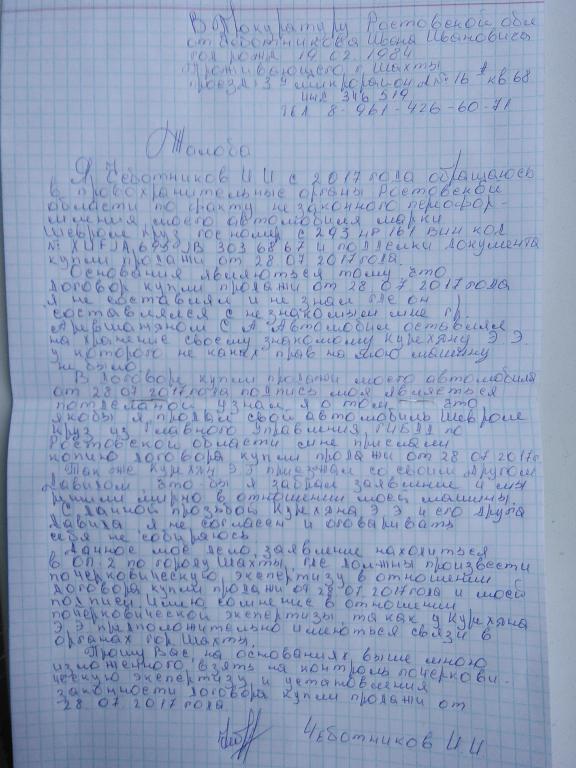 В Прокуратуру Ростовской обл
от Чеботникова Ивана Ивановича
год рожд 19 02 1984
Проживающего г Шахты
проезд 3й микрорайон д № 16 кв 68
инд 346 519
тел 8-961-426-60-71
Жалоба
Я, Чеботников И И с 2017 года обращаюсь
в провохранительные органы Ростовской
области по факту незаконного переофор-
мления моего автомобиля марки
Шевроле круз госномер с 293 нр 161 вин код
и подделки документа
купли продажи от 28 07 2017 года.
Основания являються тому, что
договор купли продажи от 28 07 2017 года
я не составлял и не знал где он
составлялся с незнакомым мне гр.
С А Автомобиль оставлял
на хранение своему знакомому Курхяну Э Э
у которого не каких прав на мою машину
не было.
В договоре купли продажи моего автомобиля
от 28 07 2017 года подпись моя являеться
поддельной узнал я о том что
якобы я продал свой автомобиль Шевроле
Круз, из Главного Управления ГИБДД по
Ростовской области мне прислали
копию договора купли продажи от 28 07 2017г.
Так же Курхян Э Э приезжал со своим другом
Давидом что-бы я забрал заявление и мы
решили мирно в отношении моей машины.
С данной прозьбой Курхяна Э Э и его друга
Давида я не согласен и оговаривать
себя не собираюсь
Данное мое дело, заявление находиться
в ОП-2 по городу Шахты, где должны произвести
почерковическую экспертизу в отношении
договора купли продажи от 28 07 2017 года и моей
подписи Имею сомнение в отношении
почерковической экспертизы, так как у Курхяна
Э Э предположительно имеються связи в
органах гор Шахты.
Прошу Вас на основаниях выше мною
изложенного, взять на контроль почеркови-
ческую экспертизу и установления
законности договора купли продажи от
28 07 2017 года
Чеботников И И